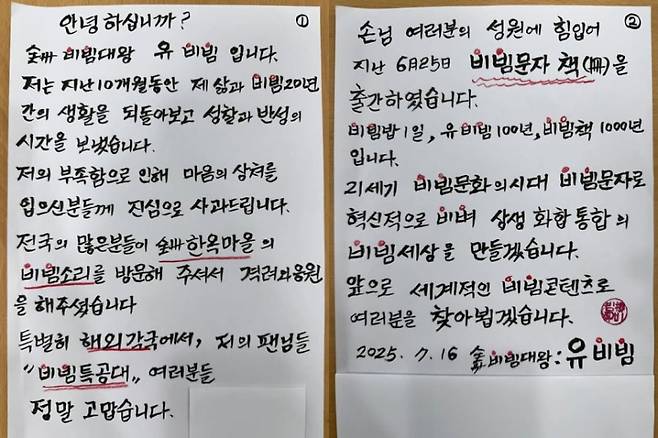 안녕하십니까?
①
비빔대왕 유비빔 입니다.
저는 지난 10개월동안 제 삶과 비빔20년
간의 생활을 되돌아보고 성찰과 반성의
시간을 보냈습니다.
저의 부족함으로 인해 마음의 상처를
입으신분들께 진심으로 사과드립니다.
전국의 많은분들이 한옥마을의
비빔소리를 방문해 주셔서 격려와응원
을 해주셨습니다
특별히 해외각국에서, 저의 팬님들
"비빔특공대" 여러분들
정말 고맙습니다.
손님 여러분의 성원에 힘입어
②
지난 6月25日 비빔문자 책(冊)을
출간하였습니다.
비빔밥 1일, 유비빔100년, 비빔책 1000년
입니다.
21세기 비빔문화의시대 비빔문자로
혁신적으로 비벼 상생 화합 통합의
비빔세상을 만들겠습니다.
앞으로 세계적인 비빔콘텐츠로
여러분을 찾아뵙겠습니다.
2025. 7. 16 비빔대왕: 유비빔